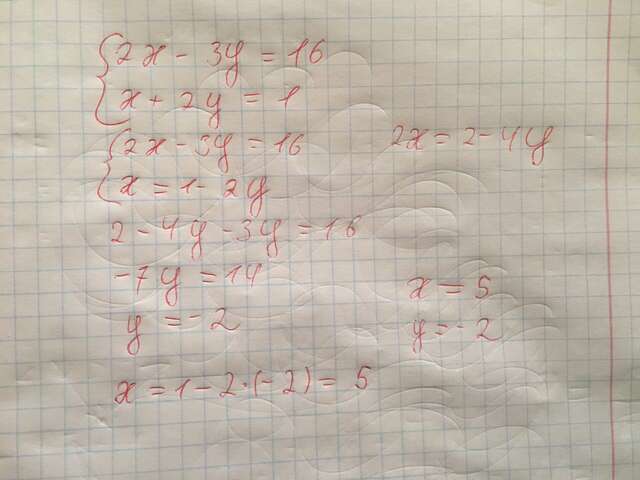 2x - 3y = 16
x + 2y = 1
2x - 3y = 16
2x = 2 - 4y
x = 1 - 2y
2 - 4y - 3y = 16
-7y = 14
y = -2
x = 5
y = -2
x = 1 - 2·(-2) = 5